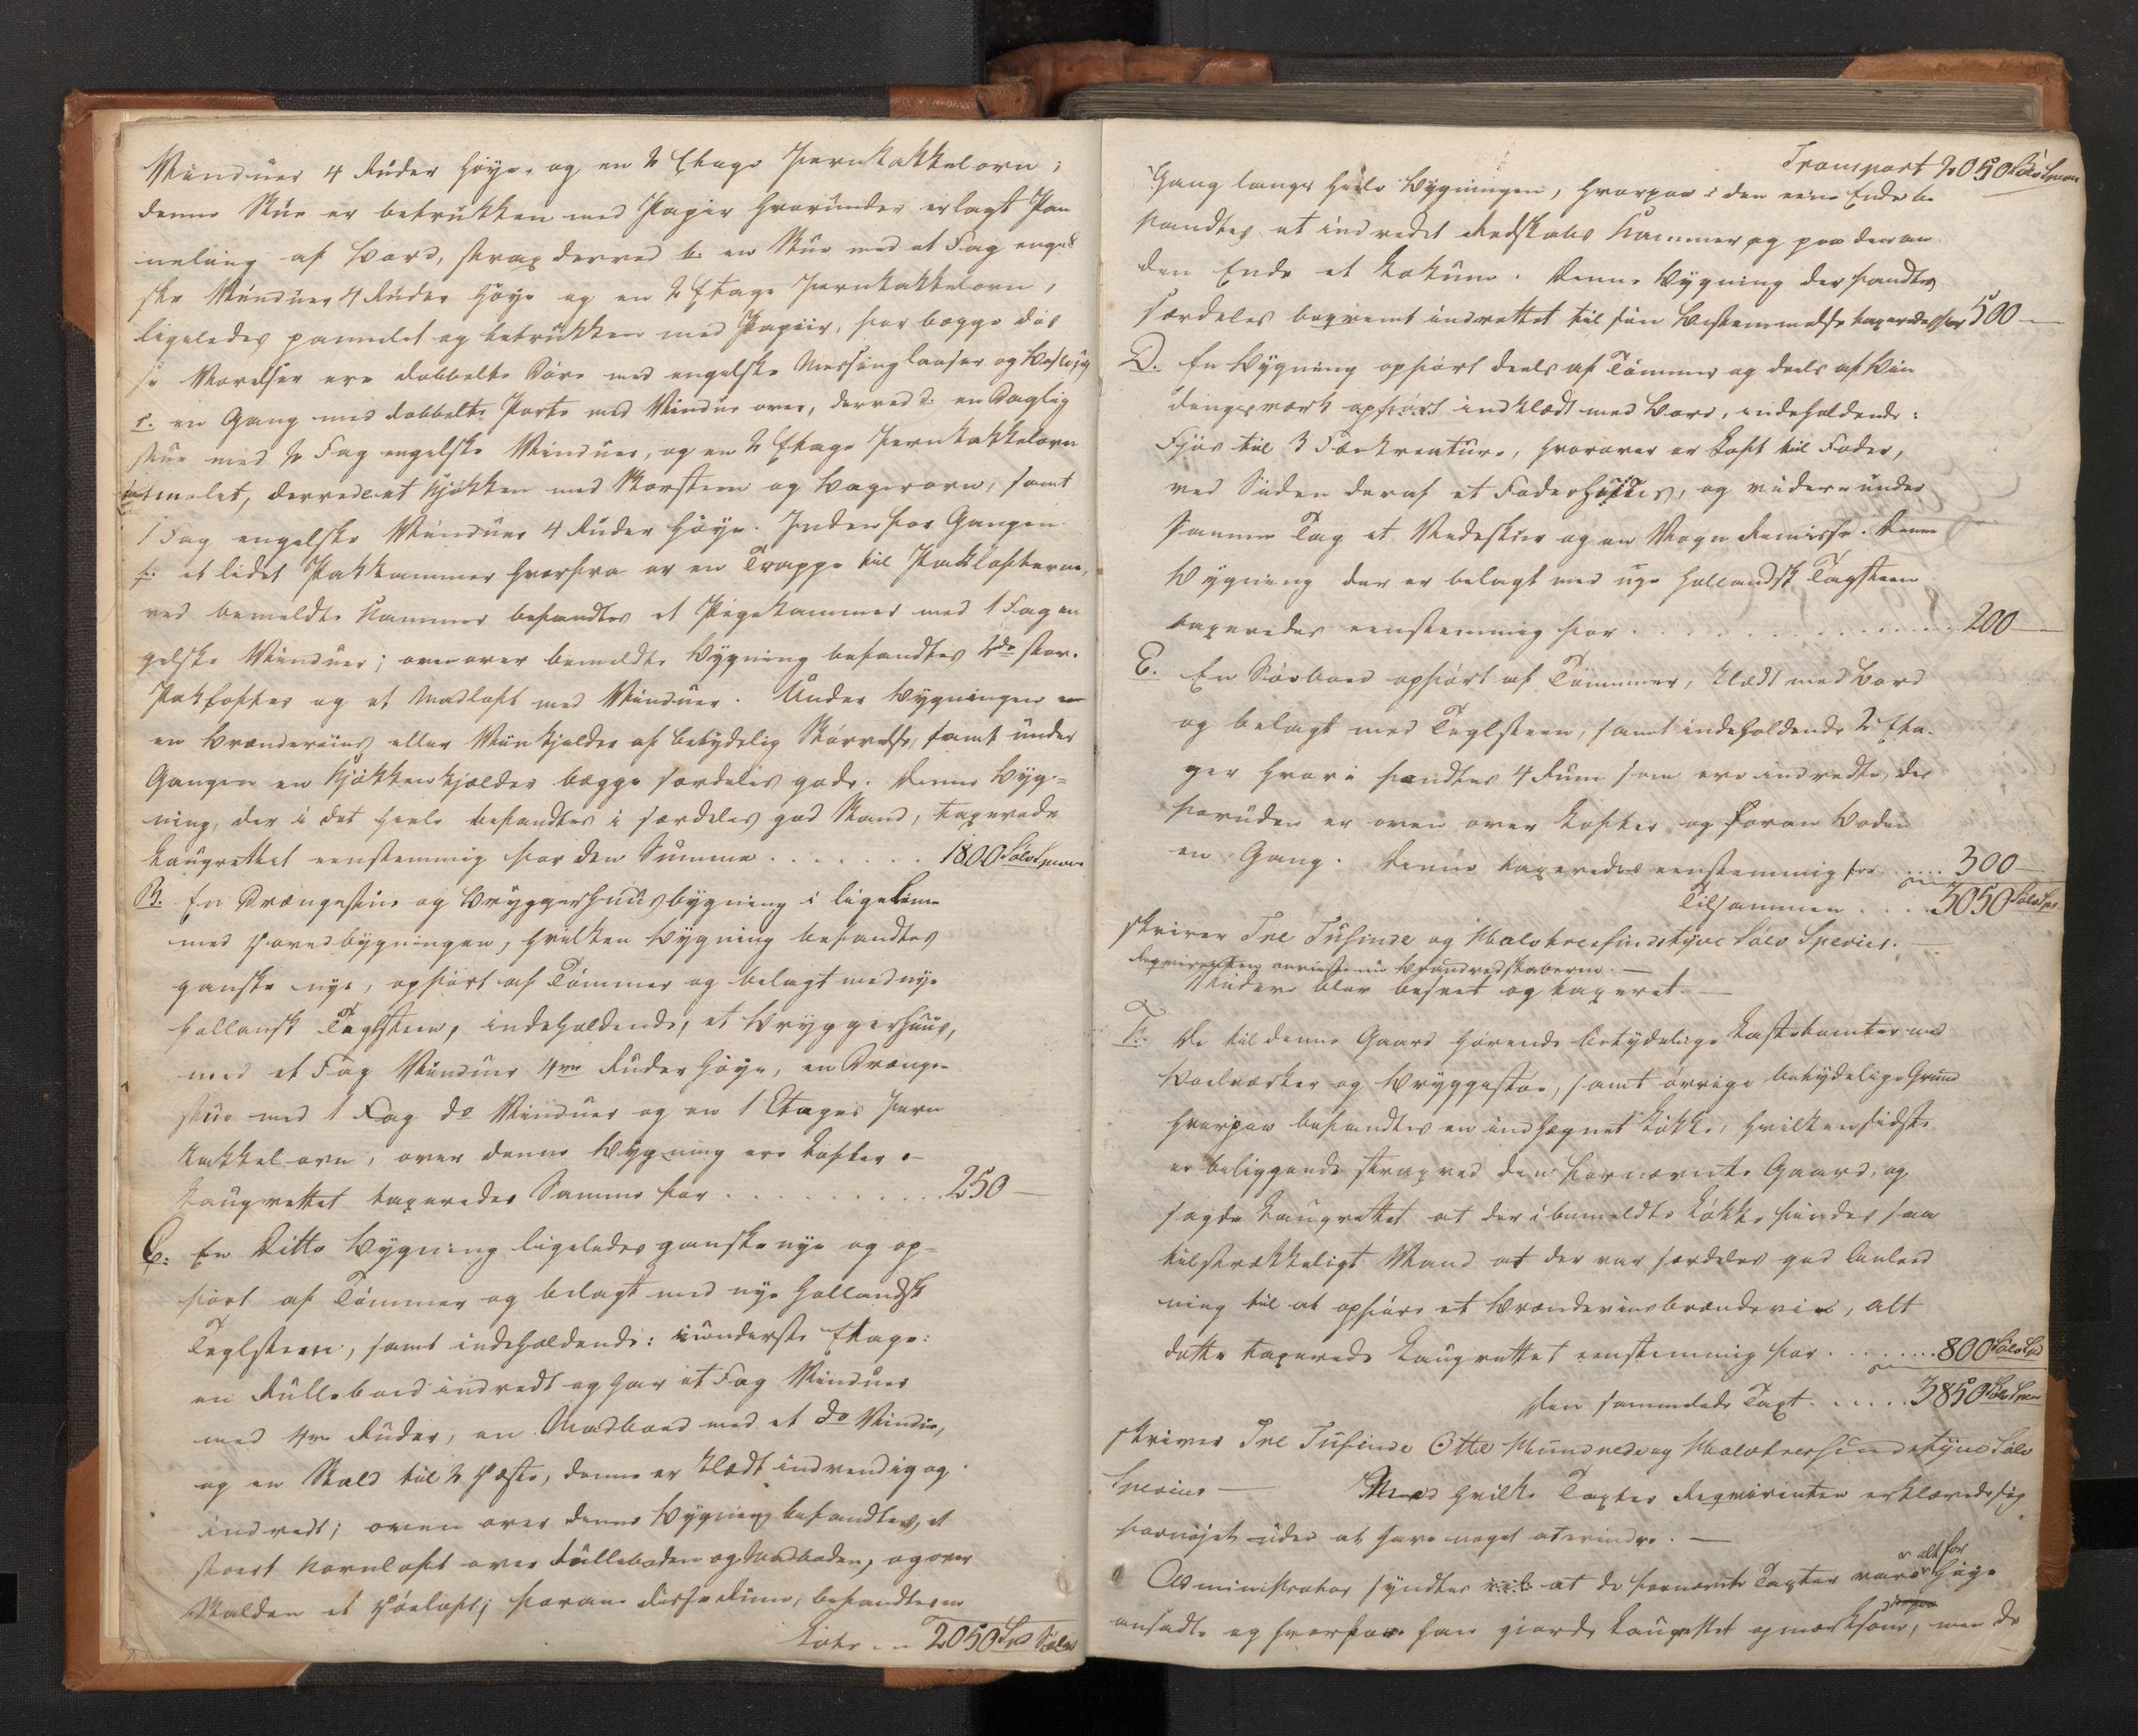 Vinduer 4 Ruder høye, og en 2 Etage Jernkakkelovn;
denne Stue er betrukken med Papir hvorunder er lagt Pan
neling af Bord, strax derved b. en Stue med et Fag engel
ske Vinduer 4 Ruder høye og en 2 Etage Jernkakkelovn,
ligeledes pannelet og betrukken med Papiir, for begge dis
se Værelser ere dobbelte Døre med engelske Messinglaaser og Beslag
c. en Gang med dobbelte Porte med Vindue over, derved d. en Daglig
stue med 2 Fag engelske Vinduer, og en 2 Etage Jernkakkelovn
malet, derved e. et Kjøkken med Skorsteen og Bagerovn, samt
1 Fag engelske Vinduer 4 Ruder høye. Indenfor Gangen
f. et lidet Pakkammer hvorfra er en Trappe til Paklofterne,
ved bemeldte Kammer befandtes et Pigekammer med 1 Fag en
gelske Vinduer; oven over bemeldte Bygning befandtes 2de store
Pakhofter og et Madloft med Vinduer. Under Bygningen er
en Brænderiins eller Viinkjelder af betydelig Størrelse, samt under
Gangen en Kjøkkenkjælder begge særdeles gode. Denne Byg-
ning, der i det heele befandtes i særdeles god Stand, taxerede
Laugrettet eenstemmig for den Summa . . . . . . . 1800 Sølv Specier
B. En Drængestue og Bryggerhuusbygning i lige Linie
med Hovedbygningen, hvilken Bygning befandtes
ganske nye, opført af Tømmer og belagt med nye
hollansk Taglsteen, indeholdende, et Bryggerhuus,
med et Fag Vinduer 4re Ruder høye, en Drænge-
stue med 1 Fag do Vinduer og en 1 Etages Jern
kakkelovn, over denne Bygning ere Lofter.
Laugrettet taxeredes Samme for . . . . . . . . . . 250 —
C. En Ditto Bygning ligeledes ganske nye og op-
ført af Tømmer og belagt med nye hollandsk
Teglsteen, samt indeholdende: i underste Etage:
en Rullebod indredt og har et Fag Vinduer
med 4re Ruder, en Madbod med et do Vindue,
og en Stald til 2 Hæste, denne er klædt indvendig og
indredt; oven over denne Bygning befandtes, et
stort Kornloft over Rulleboden og Madboden, og over
Stalden et Høeloft; foran disse Rum, befandtes en
Latr . . . 2050 Spd Sølv
Transport 2050 Sølv Specier
Gang langs heele Bygningen, hvorpaa i den eene Ende be
fandtes et indredet Redskabs Kammer og paa den an
den Ende et Lokum. Denne Bygning der fandtes
særdeles beqvemt indrettet til sin Bestemmelse taxeredes for 500 —
D. En Bygning opført deels af Tømmer og deels af Bin
dingsværk opført indklædt med Bord, indeholdende:
Fjøs til 3 Færkreature, hvorover er Loft til Foder,
ved Siden deraf et Foderhuus, og videre under
samme Tag et Vedeskuer og en Vogn Remisse. Denne
Bygning der er belagt med nye hollandsk Tagsteen
taxeredes eenstemmig for . . . . . . . . . . . . . 200 —
E. En Søebod opført af Tømmer, klædt med Bord
og belagt med Teglsteen, samt indeholdende 2 Eta-
ger hvori fandtes 4 Rum som ere indredte, des
foruden er oven over Lofter og foran Boden
en Gang. Denne taxeredes eenstemmig for . . . . . 300 —
Tilsammen . . . . 3050 Sølv Spe
skriver Tre Tusinde og Halvtreesindstyve Sølv Species. —
Reqvirenten anviiste nu Brandredskaberne. —
Videre blev beseet og taxeret. —
F. De til denne Gaard hørende betydelige Lastetomter med
Bolværker og Bryggestøe, samt øvrige betydelige Grund
hvorpaa befandtes en indhægnet Løkke, hvilken sidste
er beliggende strax ved den fornævnte Gaard, og
sagde Laugrettet at der i bemeldte Løkke findes saa
tilstrækkeligt Vand at der var særdeles god Anled
ning til at opføre et Brændeviinsbrænderie, alt
dette taxerede Laugrettet eenstemmig for . . . . . . . 800 Sølv Spd
den sammelede Taxt . . . . . 3850 Sølv Specier
skriver Tre Tusinde Otte Hundrede og Halvtreesindstyve Sølv
Specier — Med hvilke Taxter Reqvirenten erklærede sig
fornøjet uden at have noget at erindre. —
Administrator syndtes at de fornævnte Taxter vare alt for høye
ansadte og hvorpaa han giorde Laugrettet opmærksom, men de